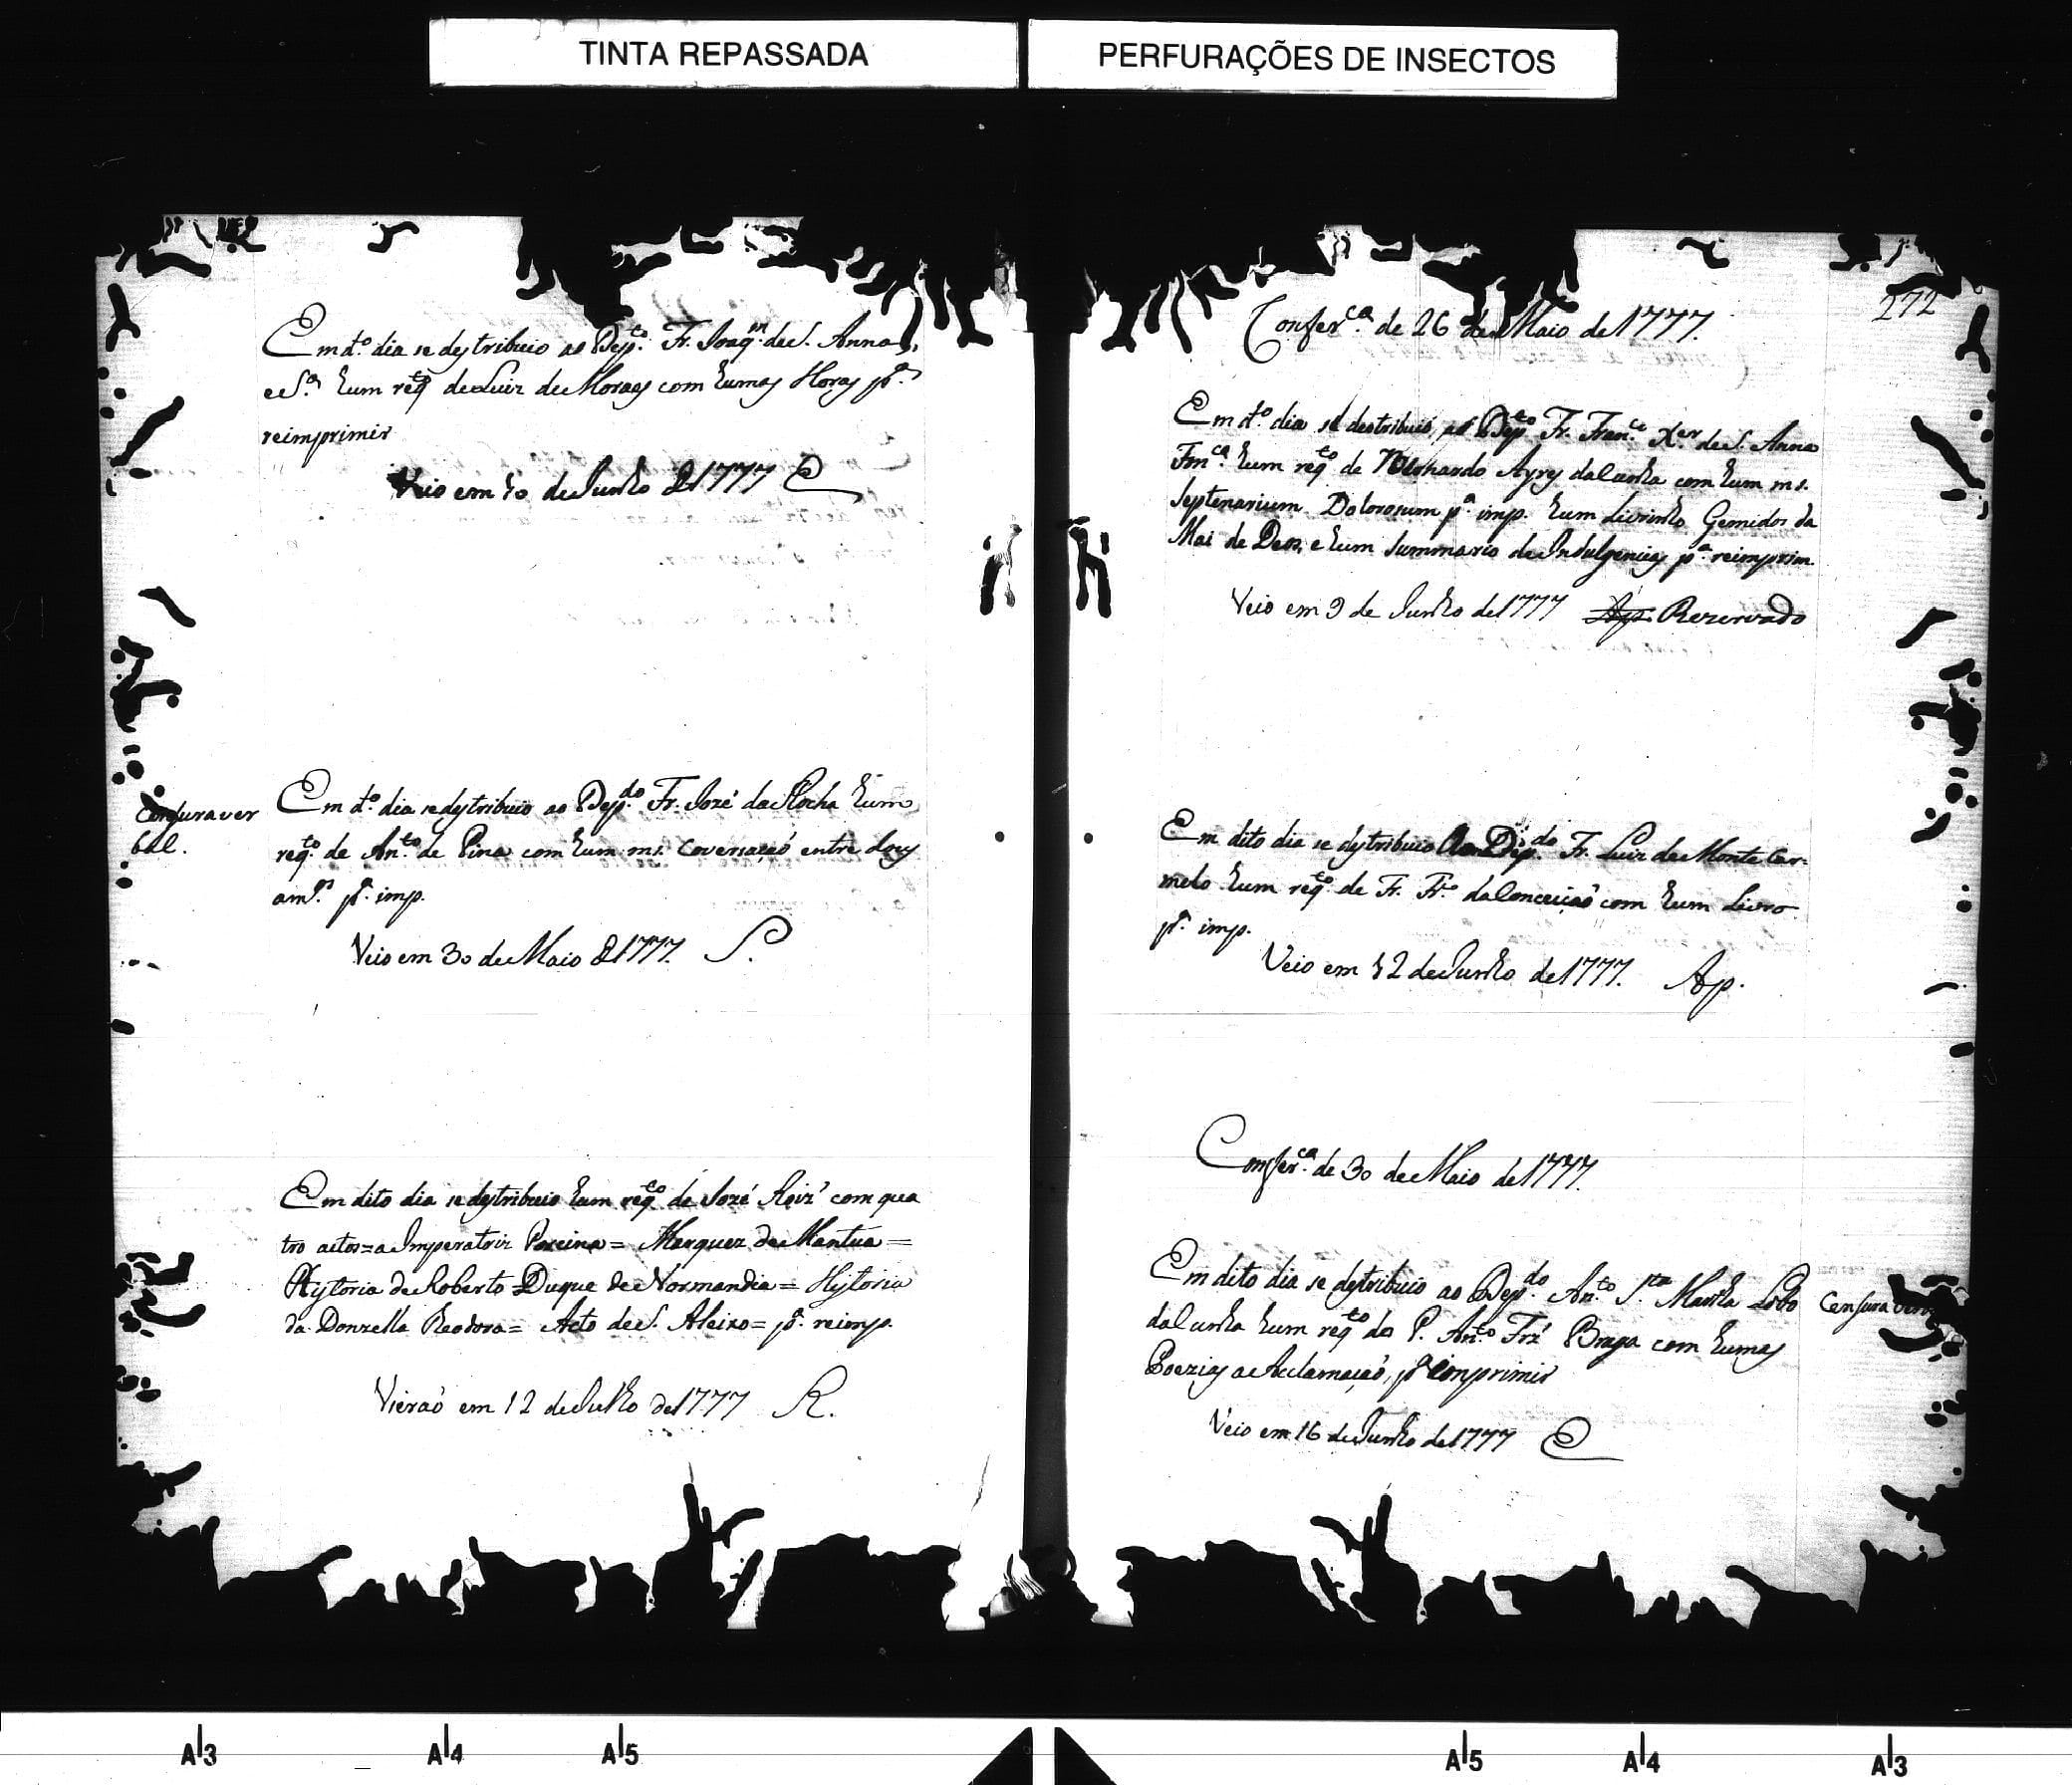 TINTA REPASSADA
PERFURAÇÕES DE INSECTOS
Em d.º dia se destribuio ao Dep.to Fr. Joaq.m de S. Anna,
e S.ª hum req.to de Luiz de Moraes com humas Horas p.ª
reimprimir
Veio em 10 de Junho d 1777 C
Censura ver
bal.
Em d.º dia se destribuio ao Dep.do Fr. Jozé da Rocha hum
req.to de An.to de Pina com hum ms. Coversaçaõ entre dous
am.os p.ª imp.
Veio em 30 de Maio d 1777. S.
Em dito dia se destribuio hum req.to de Jozé Roiz' com qua
tro actos = a Imperatriz Porcina = Marquez de Mantua =
Hystoria de Roberto Duque de Normandia = Hystoria
da Donzella Theodora = Acto de S. Aleixo = p.ª reimp.
Vieraõ em 12 de Julho de 1777 R.
272
Confer.ca de 26 de Maio de 1777.
Em d.º dia se destribuio, ao Dep.to Fr. Fran.co X.er de S. Anna
Fon.ca hum req.to de Bernardo Ayres da Cunha com hum ms.
Septenarium Dolorosum p.ª imp. hum Livrinho Gemidos da
Mai de Deos, e hum Summario de Indulgencias p.ª reimprim.
Veio em 9 de Junho de 1777 Ap. Rezervado
Em dito dia se destribuio Ao Dep.do Fr. Luiz de Monte Car-
melo hum req.to de Fr. Fr.co da Conceiçaõ com hum Livro
p.ª imp.
Veio em 12 de Junho de 1777. Ap.
Confer.ca de 30 de Maio de 1777.
Em dito dia se destribuio ao Dep.do An.to S.ta Martha Lobo
da Cunha hum req.to do P. An.to Frz' Braga com humas
Poezias a Acclamaçaõ, p.ª imprimir
Censura
Veio em 16 de Junho de 1777 C
A3
A4
A5
A5
A4
A3